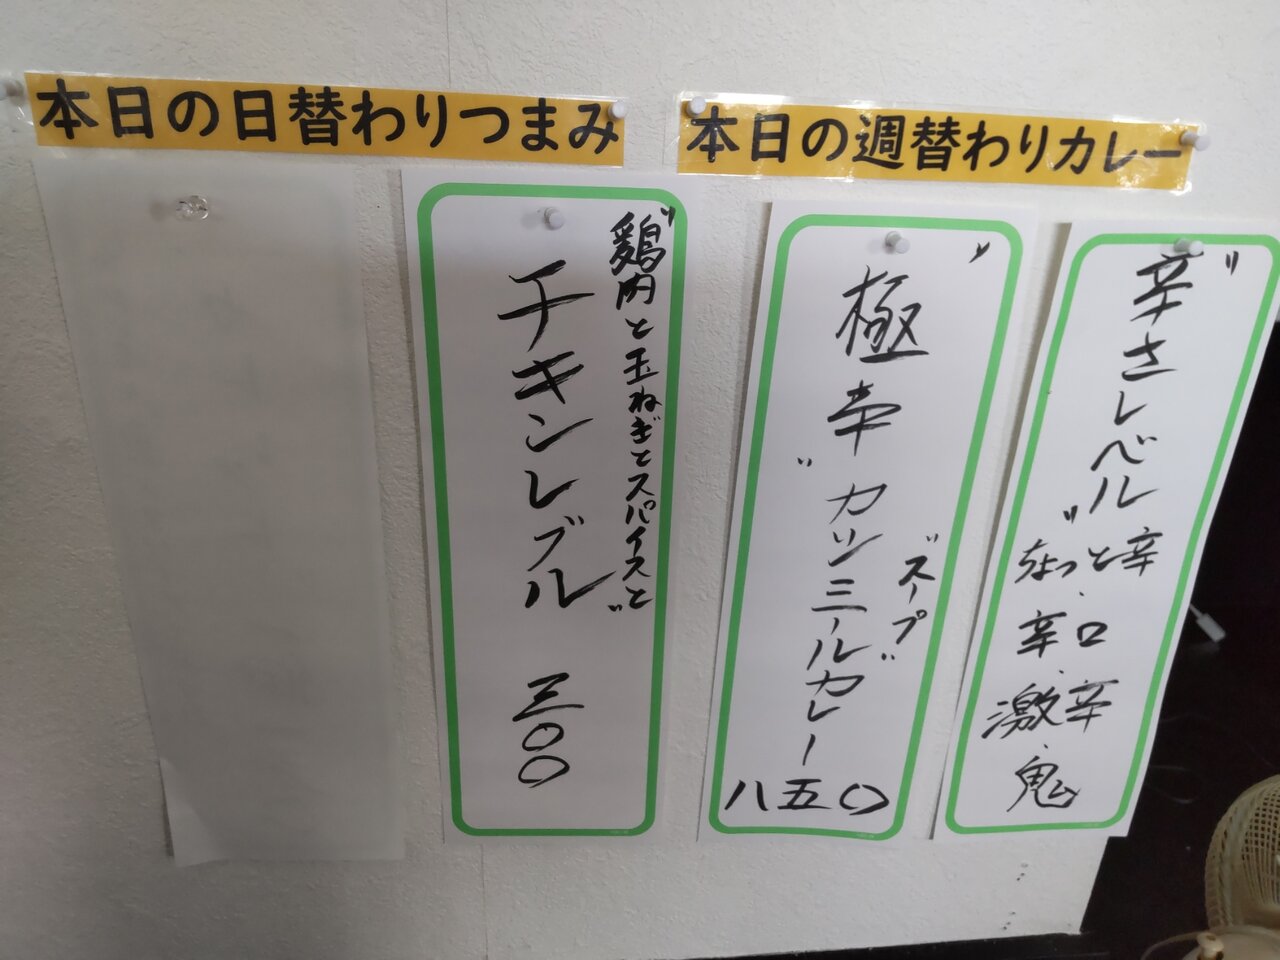 本日の日替わりつまみ
本日の週替わりカレー
"鶏肉と玉ねぎとスパイスと"
チキンレブル
三〇〇
"極辛"
カツミールカレー
"スープ"
八五〇
"辛さレベル"
ちょっと辛、
辛口、
激辛、
鬼